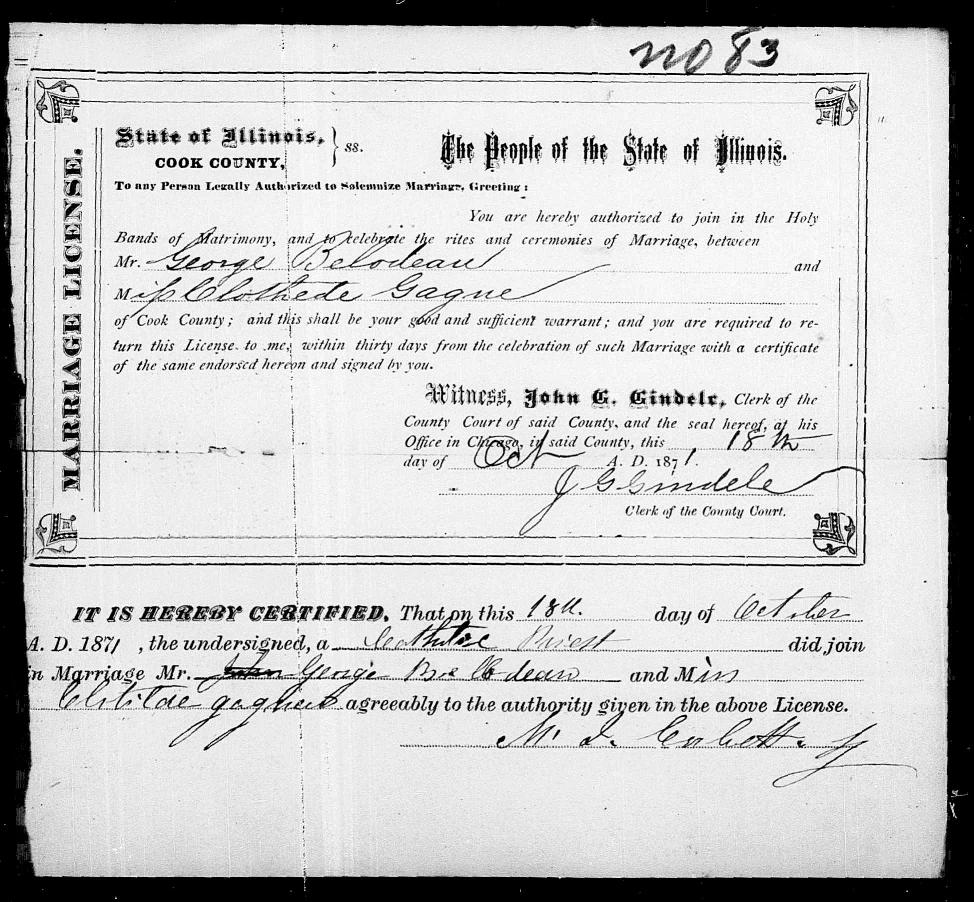 no 83
MARRIAGE LICENSE.
State of Illinois, } ss.
COOK COUNTY,
The People of the State of Illinois.
To any Person Legally Authorized to Solemnize Marriage, Greeting:
You are hereby authorized to join in the Holy
Bands of Matrimony, and to celebrate the rites and ceremonies of Marriage, between
Mr. George Belodeau and
Miss Clothede Gagne
of Cook County; and this shall be your good and sufficient warrant; and you are required to re-
turn this License to me, within thirty days from the celebration of such Marriage with a certificate
of the same endorsed hereon and signed by you.
Witness, John G. Gindele, Clerk of the
County Court of said County, and the seal hereof, at his
Office in Chicago, in said County, this 18th
day of Oct A. D. 1871.
J G Gindele
Clerk of the County Court.
IT IS HEREBY CERTIFIED, That on this 18th. day of October
A. D. 1871, the undersigned, a Priest did join
in Marriage Mr. John George and Miss
agreeably to the authority given in the above License.